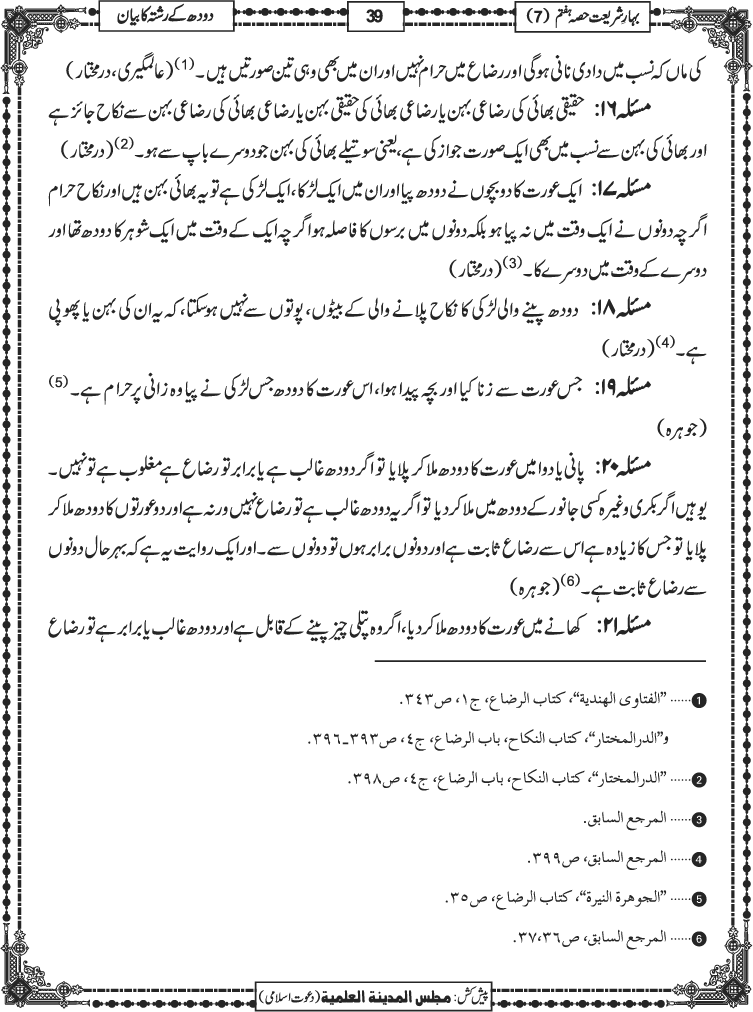 بہارِ شریعت حصہ ہفتم (7)
39
دودھ کے رشتہ کا بیان
کی ماں کہ نسب میں دادی نانی ہوگی اور رضاع میں حرام نہیں اور ان میں بھی وہی تین صورتیں ہیں۔(1) (عالمگیری، درمختار)
مسئلہ ۱۶: حقیقی بھائی کی رضاعی بہن یا رضاعی بھائی کی حقیقی بہن یا رضاعی بھائی کی رضاعی بہن سے نکاح جائز ہے
اور بھائی کی بہن سے نسب میں بھی ایک صورت جواز کی ہے، یعنی سوتیلے بھائی کی بہن جو دوسرے باپ سے ہو۔(2) (درمختار)
مسئلہ ۱۷: ایک عورت کا دو بچوں نے دودھ پیا اور ان میں ایک لڑکا، ایک لڑکی ہے تو یہ بھائی بہن ہیں اور نکاح حرام
اگرچہ دونوں نے ایک وقت میں نہ پیا ہو بلکہ دونوں میں برسوں کا فاصلہ ہو اگرچہ ایک کے وقت میں ایک شوہر کا دودھ تھا اور
دوسرے کے وقت میں دوسرے کا۔(3) (درمختار)
مسئلہ ۱۸: دودھ پینے والی لڑکی کا نکاح پلانے والی کے بیٹوں، پوتوں سے نہیں ہوسکتا، کہ یہ ان کی بہن یا پھوپی
ہے۔(4) (درمختار)
مسئلہ ۱۹: جس عورت سے زنا کیا اور بچہ پیدا ہوا، اس عورت کا دودھ جس لڑکی نے پیا وہ زانی پر حرام ہے۔(5)
(جوہرہ)
مسئلہ ۲۰: پانی یا دوا میں عورت کا دودھ ملا کر پلایا تو اگر دودھ غالب ہے یا برابر تو رضاع ہے مغلوب ہے تو نہیں۔
یوہیں اگر بکری وغیرہ کسی جانور کے دودھ میں ملا کر دیا تو اگر یہ دودھ غالب ہے تو رضاع نہیں ورنہ ہے اور دو عورتوں کا دودھ ملا کر
پلایا تو جس کا زیادہ ہے اس سے رضاع ثابت ہے اور دونوں برابر ہوں تو دونوں سے۔ اور ایک روایت یہ ہے کہ بہرحال دونوں
سے رضاع ثابت ہے۔(6) (جوہرہ)
مسئلہ ۲۱: کھانے میں عورت کا دودھ ملا کر دیا، اگر وہ پتلی چیز پینے کے قابل ہے اور دودھ غالب یا برابر ہے تو رضاع
1 ...... "الفتاوى الهندية"، كتاب الرضاع، ج١، ص٣٤٣.
و"الدرالمختار"، كتاب النكاح، باب الرضاع، ج٤، ص٣٩٣ـ٣٩٦.
2 ...... "الدرالمختار"، كتاب النكاح، باب الرضاع، ج٤، ص٣٩٨.
3 ...... المرجع السابق.
4 ...... المرجع السابق، ص٣٩٩.
5 ...... "الجوهرة النيرة"، كتاب الرضاع، ص٣٥.
6 ...... المرجع السابق، ص٣٦،٣٧.
پیش کش: مجلس المدينة العلمية (دعوت اسلامی)